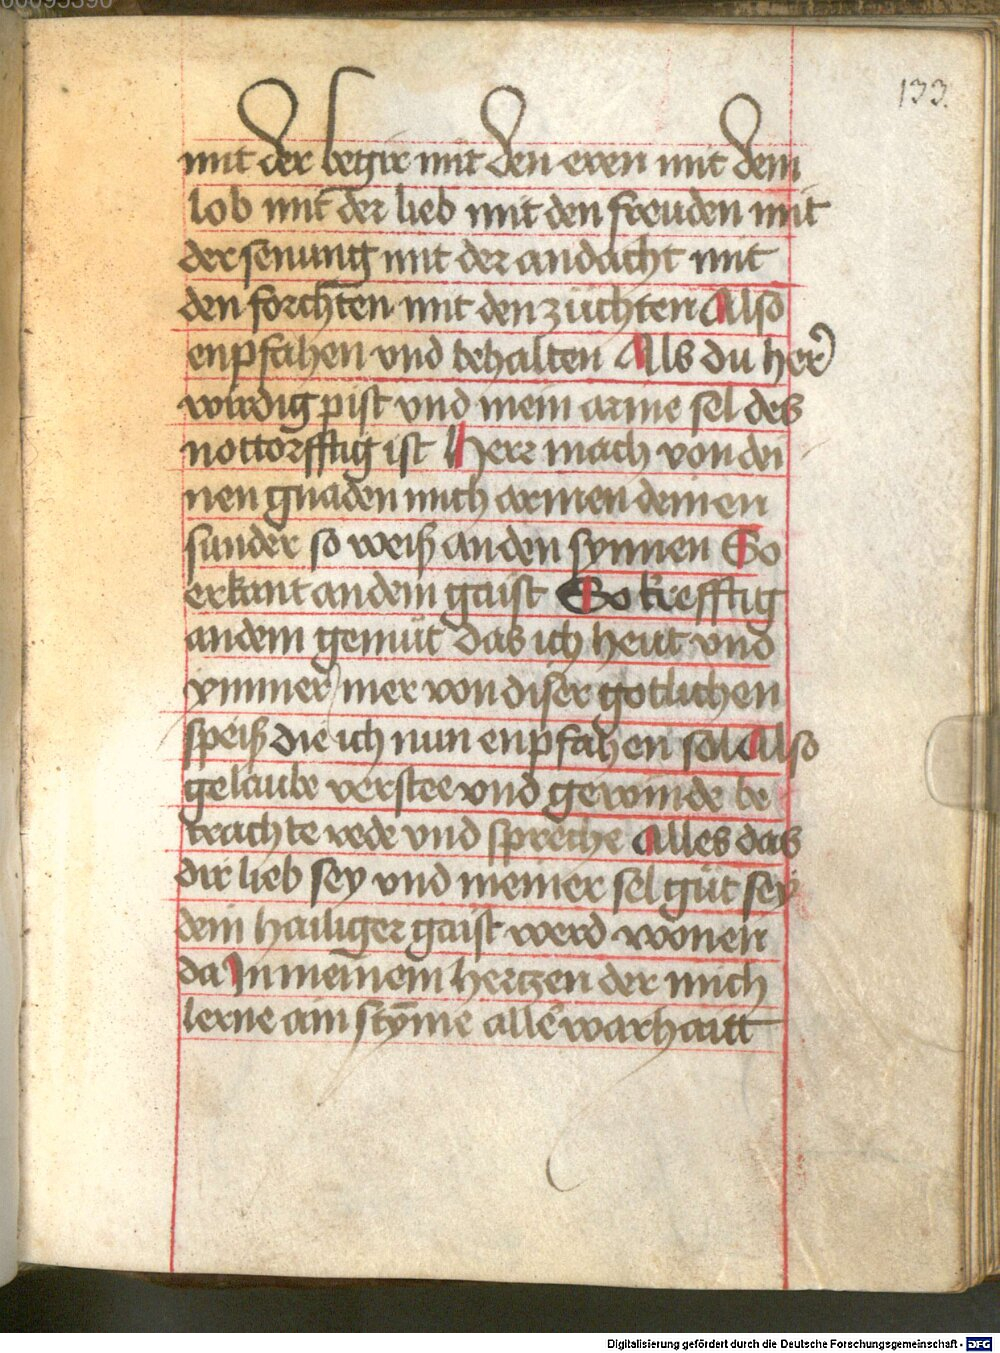 133.
mit der begir mit den eren mit dem
lob mit der lieb mit den freuden mit
der senung mit der andacht mit
den forchten mit den züchten Also
enpfahen vnd behalten Als du her
wirdig pist vnd mein arme sel des
nottorfftig ist Herr mach von dei
nen gnaden mich armen deinen
sunder so weiß an den synnen So
erkant an dem gaist So krefftig
an dem gemüt das ich heut vnd
ymmer mer von diser gotlichen
speiß die ich nun enpfahen sol Also
gelaube verstee vnd gewinde be
trachte rede vnd spreche Alles das
dir lieb sey vnd meiner sel güt sey
dein hailiger gaist werd wonen
da In meinem hertzen der mich
lerne ain stÿme alle warhaitt
Digitalisierung gefördert durch die Deutsche Forschungsgemeinschaft - DFG